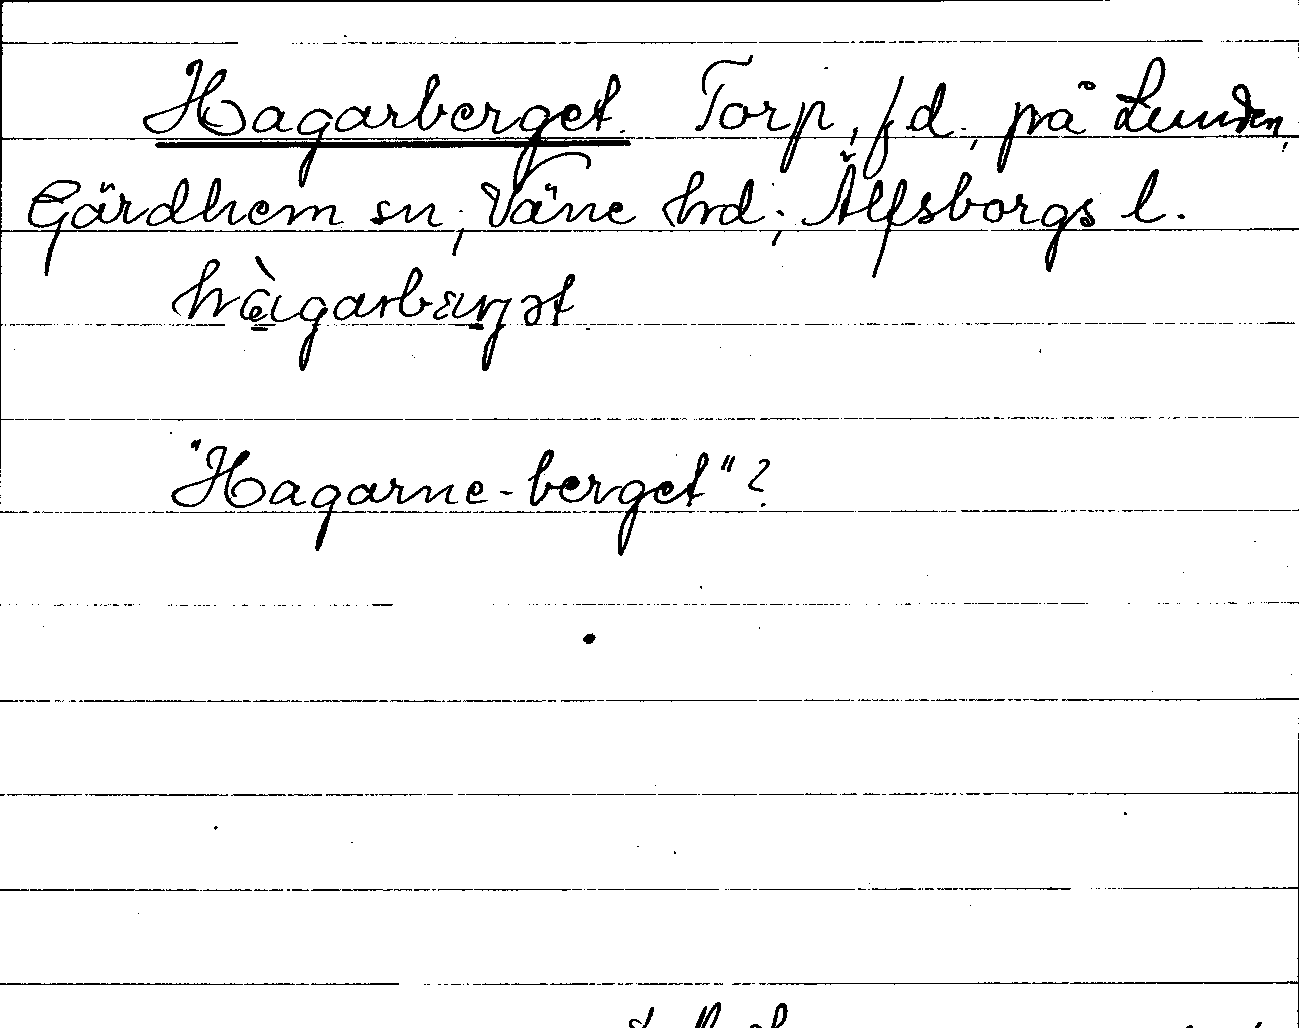 Hagarberget. Torp, f d., på Lunden,
Gärdhem sn; Väne hrd; Älfsborgs l.
hàgarbærjət
"Hagarne-berget"?